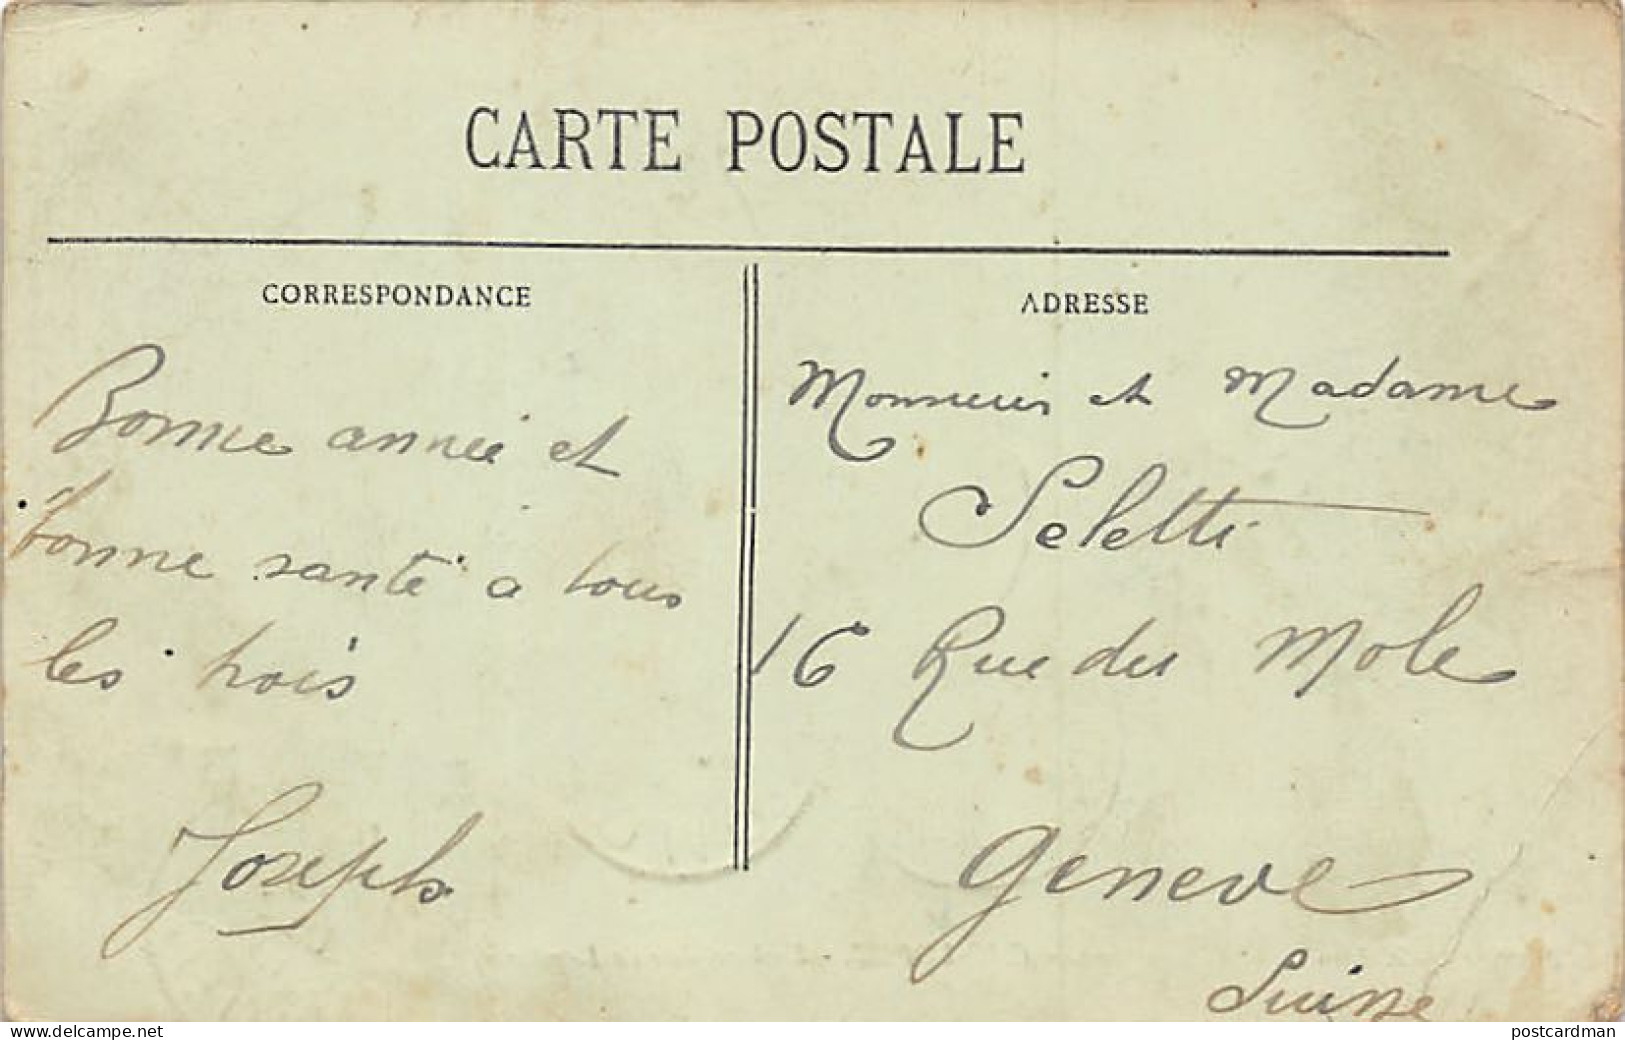 CARTE POSTALE
CORRESPONDANCE
Bonne année et
bonne santé a tous
les trois
Joseph
ADRESSE
Monsieur et Madame
Seletti
16 Rue du Mole
Geneve
Suisse
www.delcampe.net
postcardman